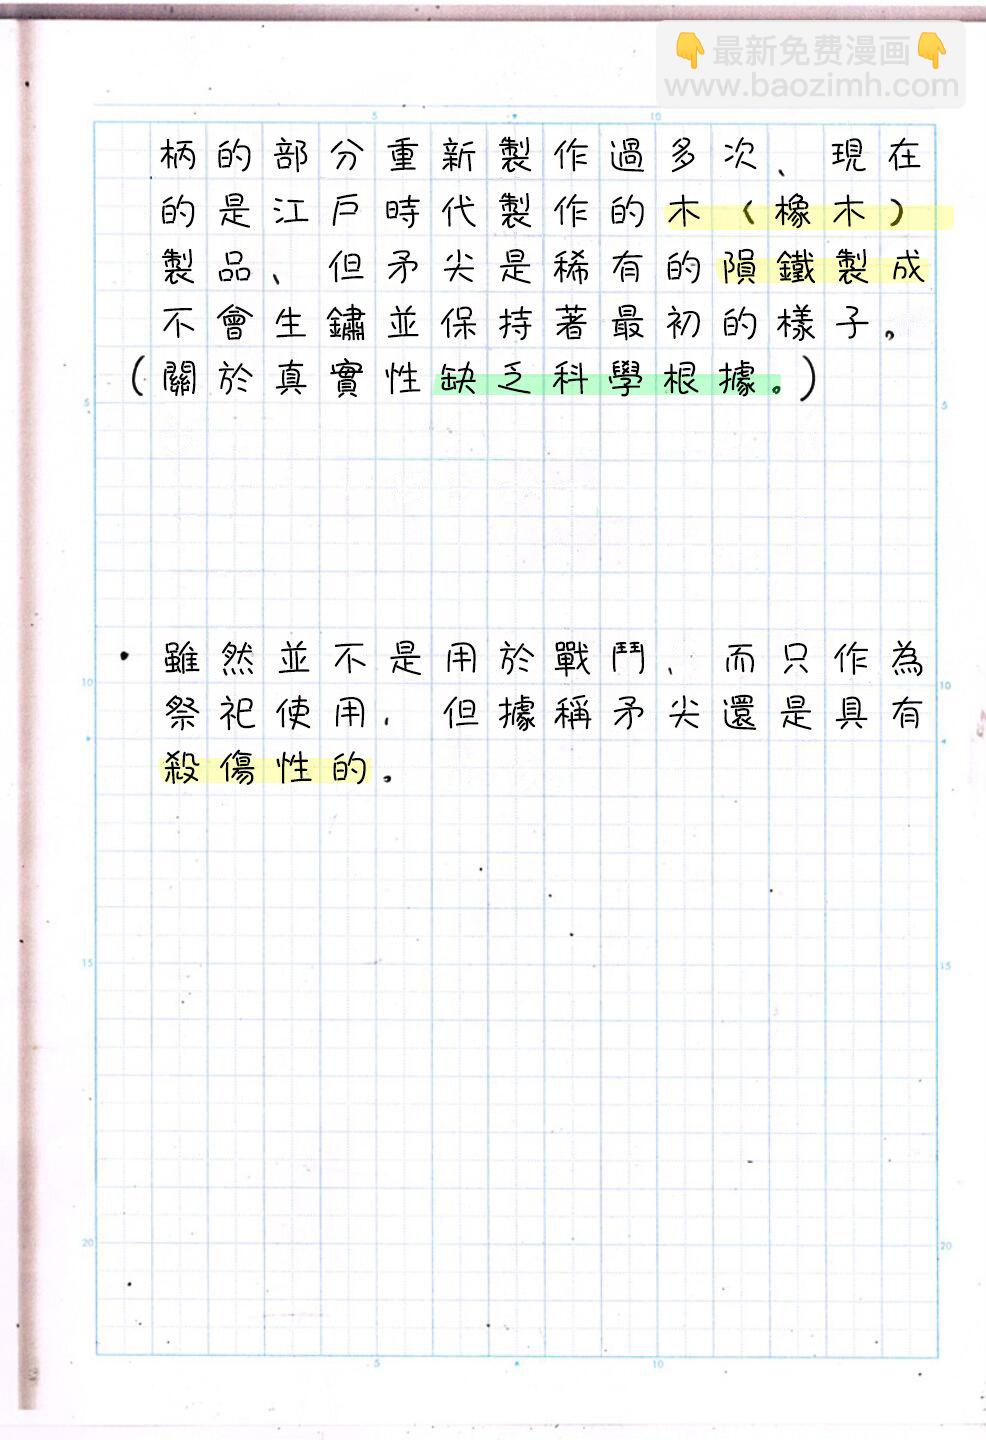 👇最新免费漫画👇
www.baozimh.com
5 10
柄的部分重新製作過多次、現在
的是江戶時代製作的木（橡木）
製品、但矛尖是稀有的隕鐵製成
不會生鏽並保持著最初的樣子。
（關於真實性缺乏科學根據。）
5 5
・雖然並不是用於戰鬥、而只作為
10 10
祭祀使用、但據稱矛尖還是具有
殺傷性的。
15 15
20 20
5 10